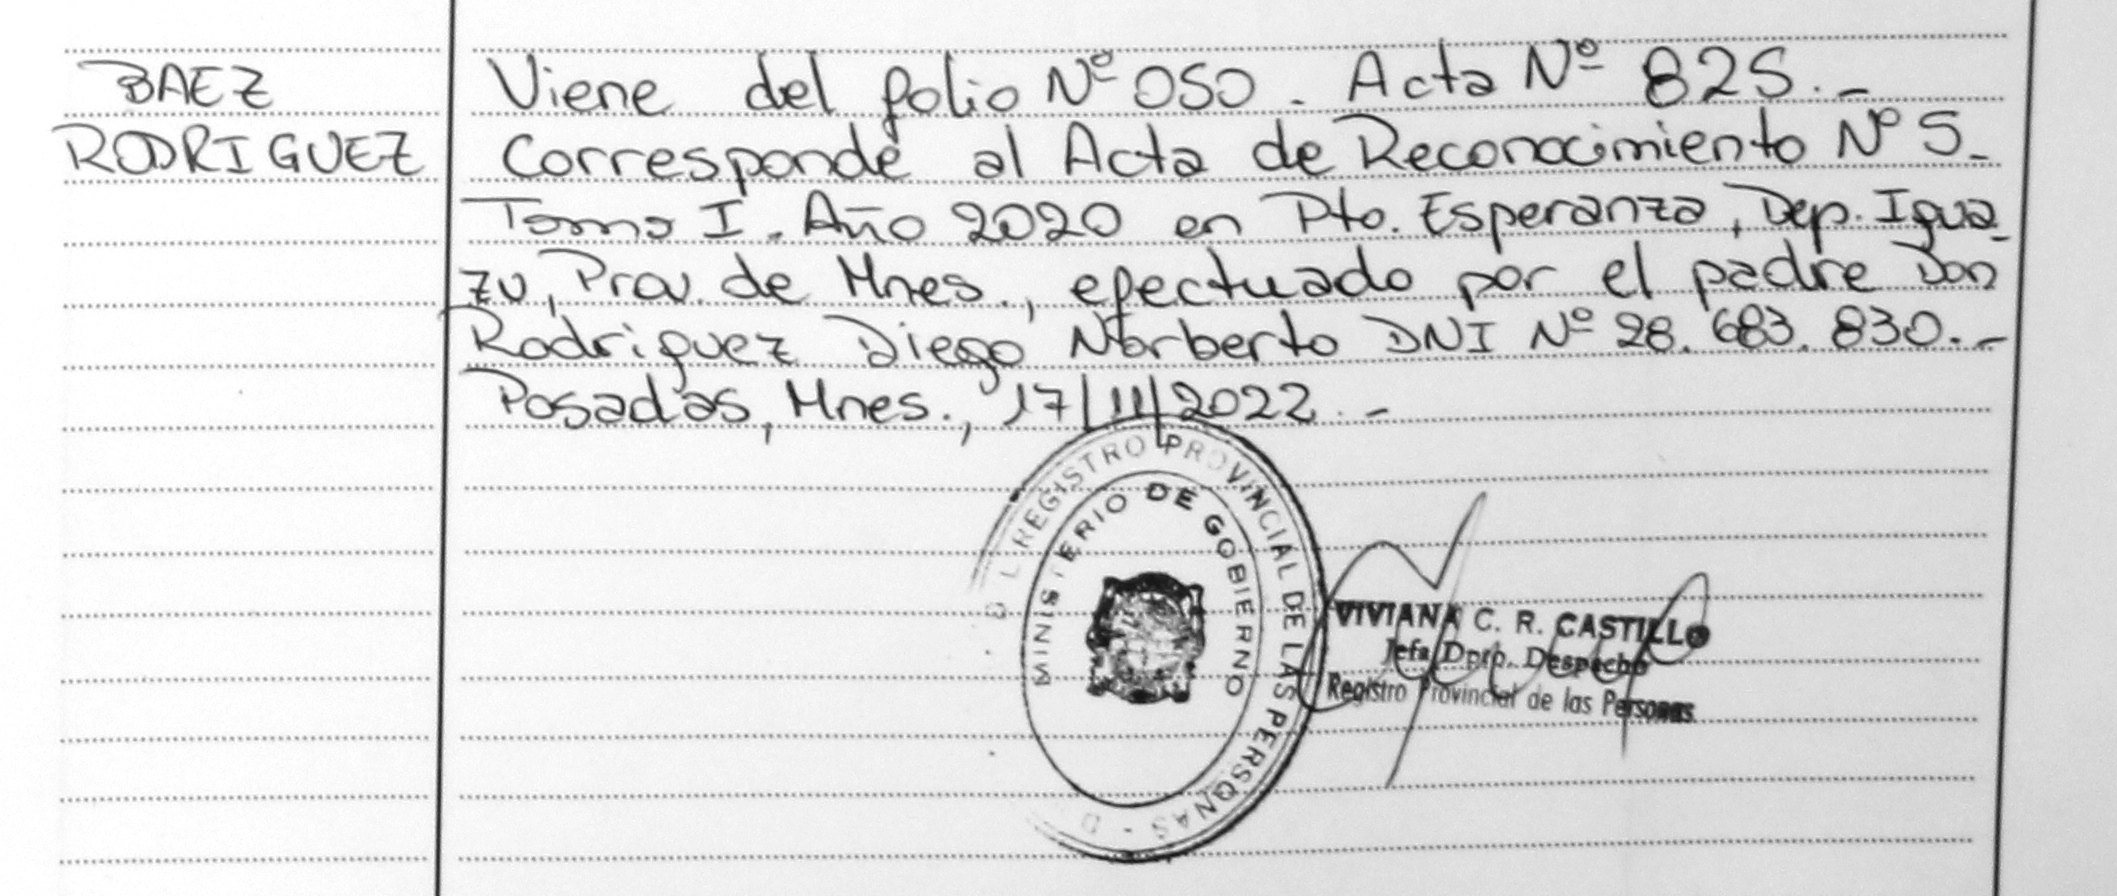 BAEZ
RODRIGUEZ
Viene del folio Nº 050. Acta Nº 825.-
Corresponde al Acta de Reconocimiento Nº 5-
Tomo I. Año 2020 en Pto. Esperanza, Dep. Igua-
zu, Prov. de Mnes., efectuado por el padre Don
Rodriguez Diego Norberto DNI Nº 28.683.830.-
Posadas, Mnes., 17/11/2022.-
REGISTRO PROVINCIAL DE LAS PERSONAS -
MINISTERIO DE GOBIERNO
VIVIANA C. R. CASTILLO
Jefa Dpto. Despacho
Registro Provincial de las Personas